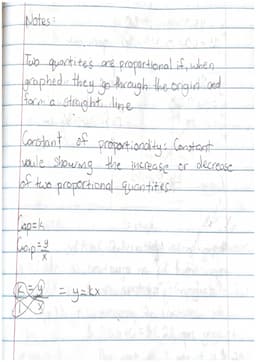 Notes:
Two quantites are proportional if, when
graphed they go through the origin and
form a straight line
Constant of proportionality: Constant
vaule showing the increase or decrease
of two proportional quantites.
Cop=k
Cop=y/x
k/1=y/x = y=kx